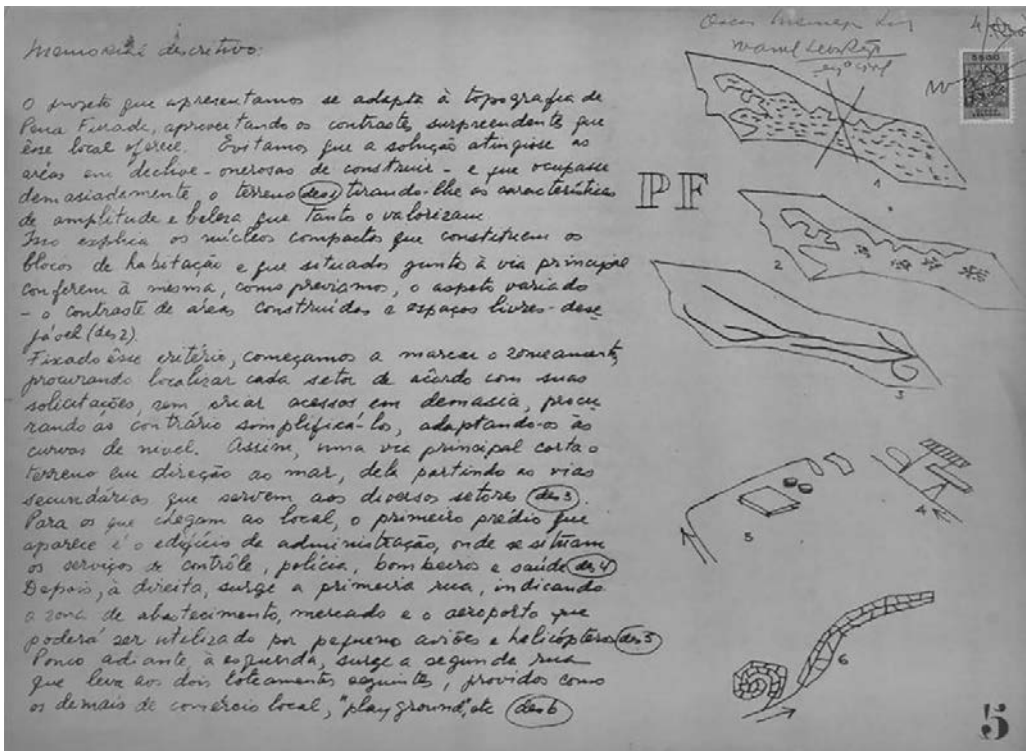 Memorial descritivo:
O projeto que apresentamos se adapta à topografia de
Pena Furada, aproveitando os contrastes surpreendentes que
êsse local oferece. Evitamos que a solução atingisse as
áreas em declive - onerosas de construir - e que ocupasse
demasiadamente o terreno (des 1) tirando-lhe as características
de amplitude e beleza que tanto o valorizam.
Isso explica os núcleos compactos que constituem os
blocos de habitação e que situados junto à via principal
conferem à mesma, como previamos, o aspeto variado
- o contraste de áreas construidas e espaços livres - dese
jável (des 2).
Fixado êsse critério, começamos a marcar o zoneamento,
procurando localizar cada setor de acôrdo com suas
solicitações, sem criar acessos em demasia, procu
rando ao contrário simplificá-los, adaptando-os às
curvas de nivel. Assim, uma via principal corta o
terreno em direção ao mar, dela partindo as vias
secundárias que servem aos diversos setores (des 3).
Para os que chegam ao local, o primeiro prédio que
aparece é o edifício da administração, onde se situam
os serviços de contrôle, polícia, bombeiros e saúde (des 4)
Depois, à direita, surge a primeira rua, indicando
a zona de abastecimento, mercado e o aeroporto que
poderá ser utilizado por pequeno aviões e helicópteros (des 5)
Pouco adiante, à esquerda, surge a segunda rua
que leva aos dois loteamentos seguintes, providos como
os demais de comércio local, "play ground", etc (des 6)
engº civil
PF
1
2
3
4
5
6
5